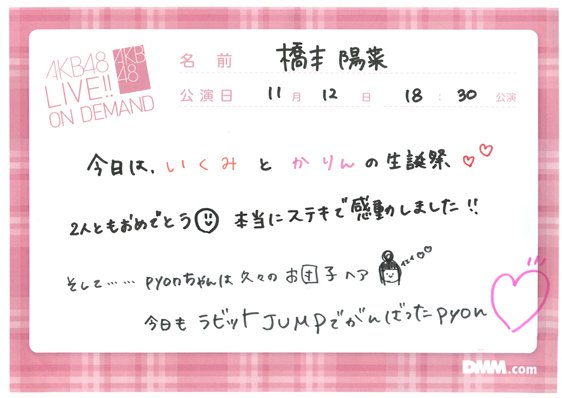 AKB48
LIVE!!
ON DEMAND
AKB
48
名前 橋本 陽菜
公演日 11月 12日 18:30 公演
今日は、いくみ と かりんの生誕祭
2人ともおめでとう 本当にステキで感動しました!!
そして…… pyonちゃんは久々のお団子ヘア
今日も ラビットJUMPでがんばったpyon
DMM.com